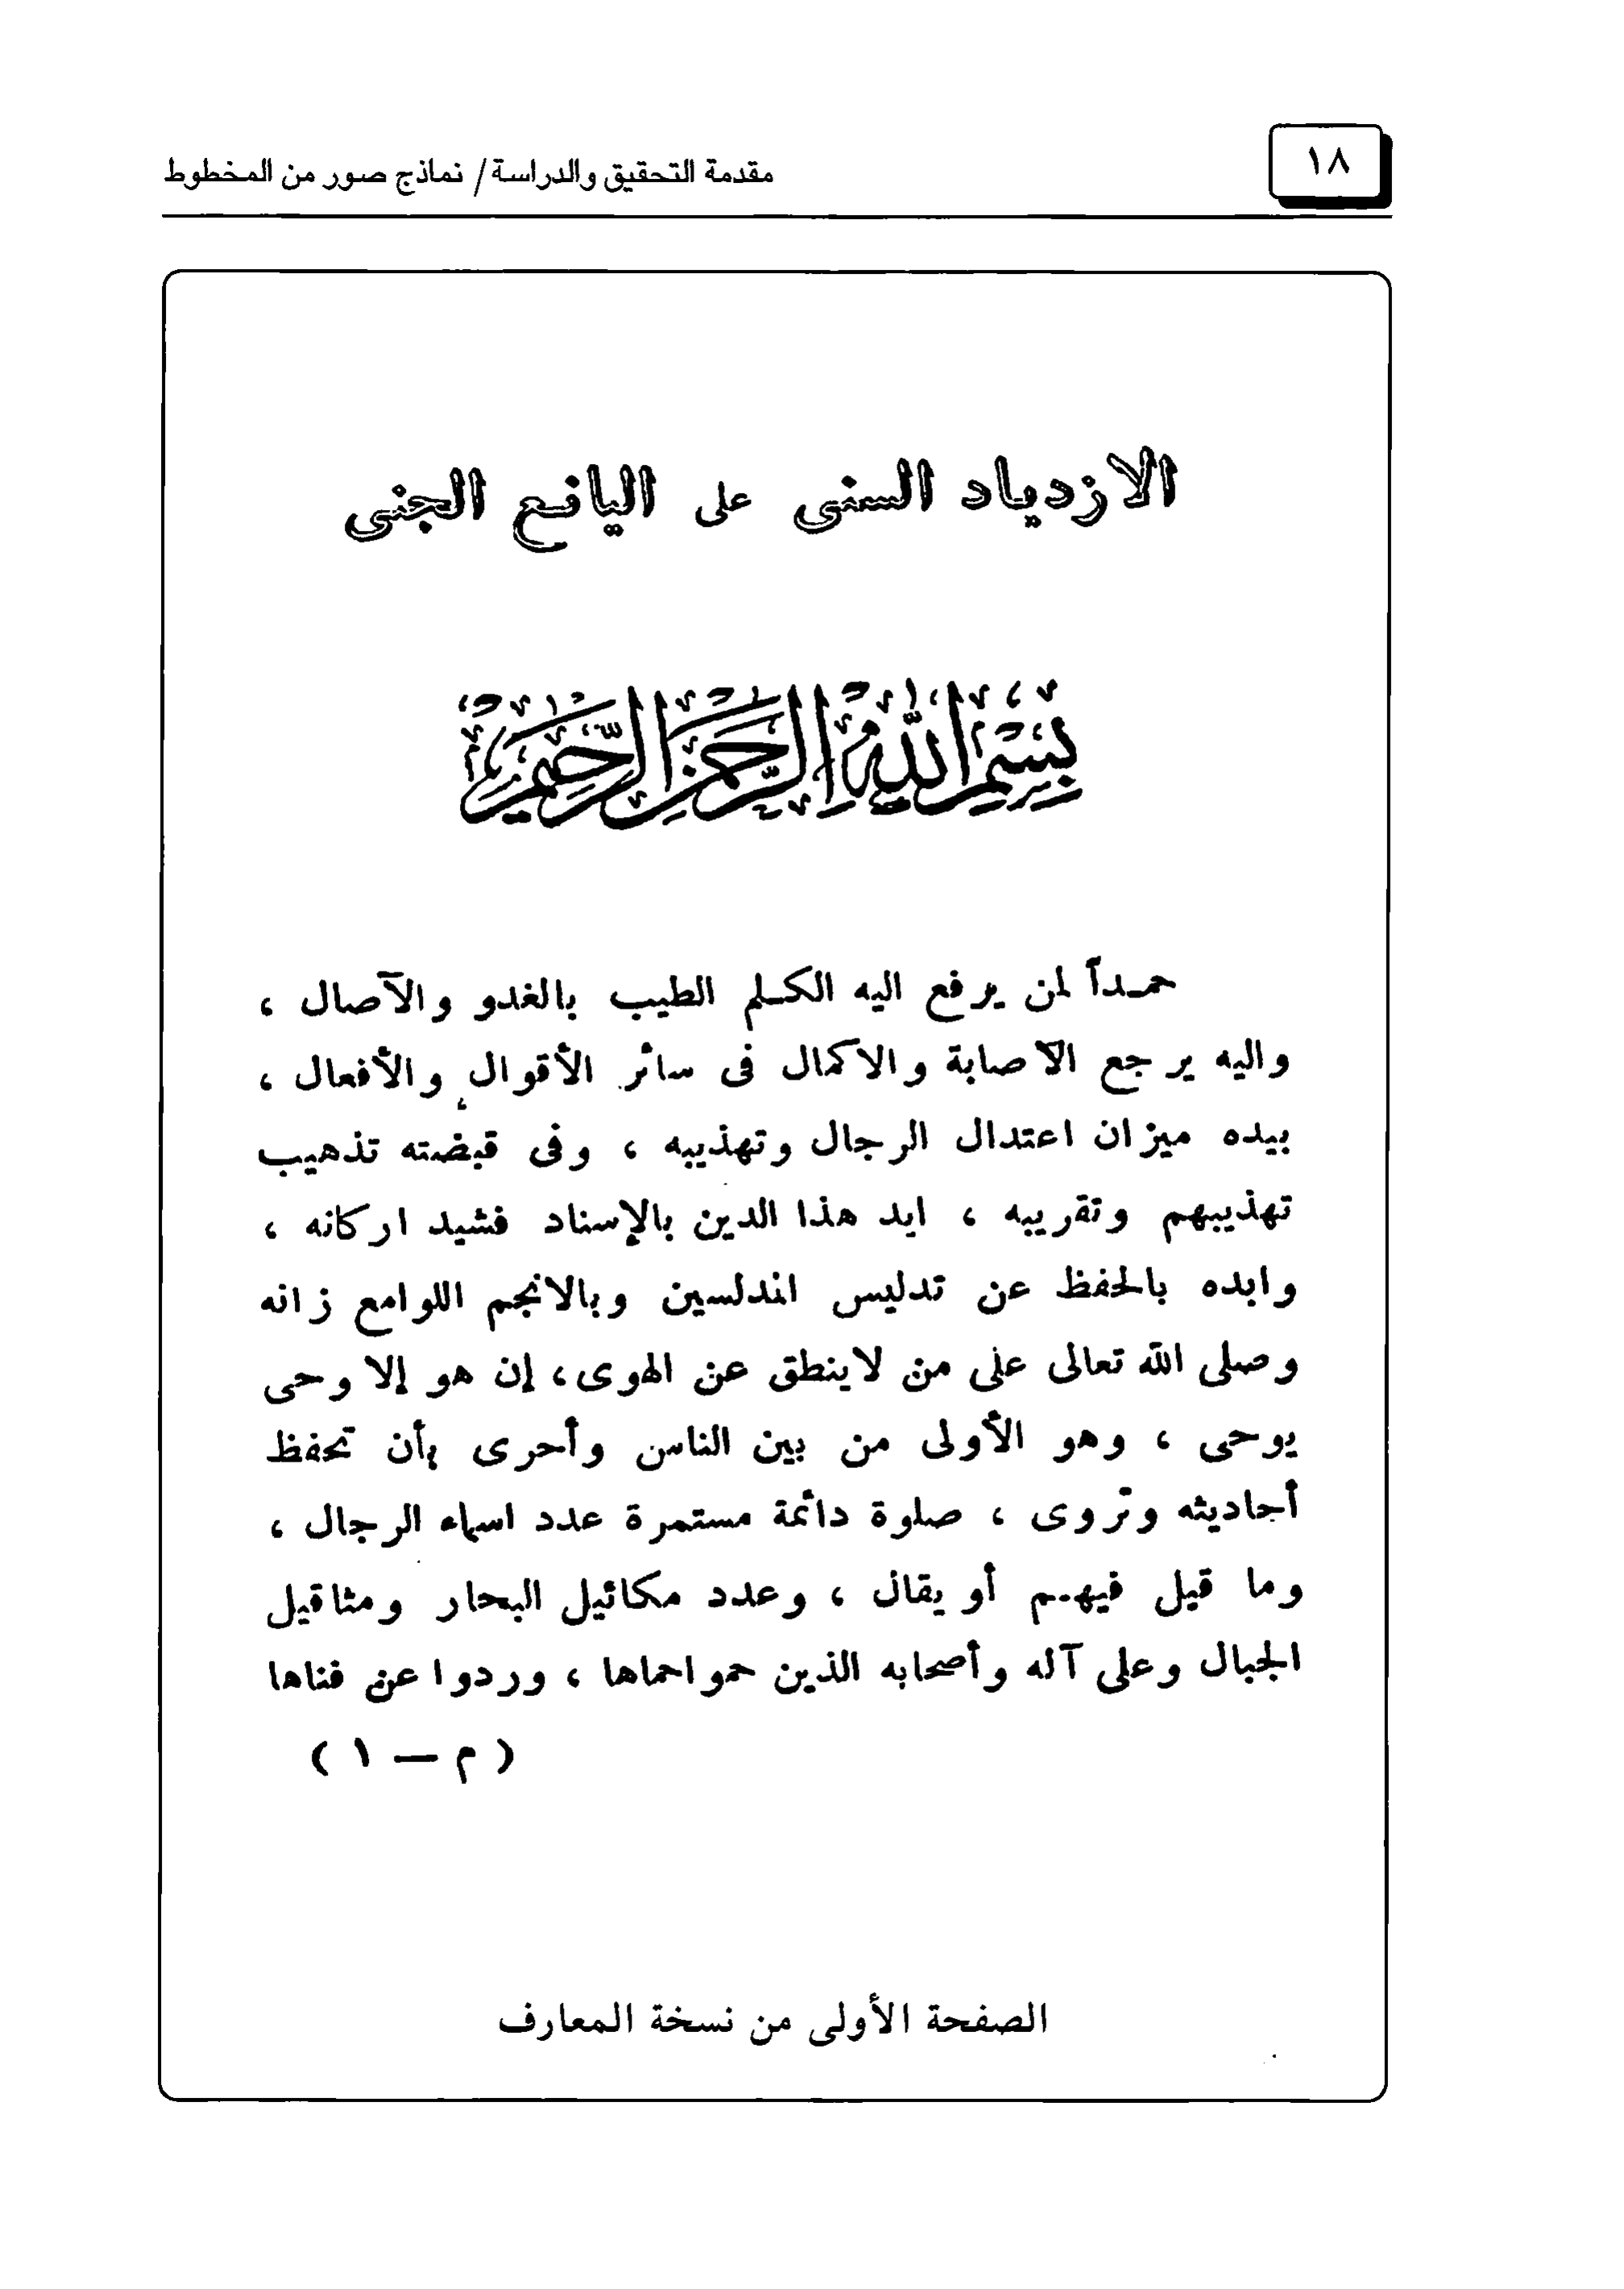 ١٨
مقدمة التحقيق والدراسة / نماذج صور من المخطوط
الازدياد السنى على اليانع الجنى
بسم الله الرحمن الرحيم
حمداً لمن يرفع اليه الكلم الطيب بالغدو والآصال ،
واليه يرجع الاصابة والاكمال فى سائر الأقوال والأفعال ،
بيده ميزان اعتدال الرجال وتهذيبه ، وفى قبضته تذهيب
تهذيبهم وتقريبه ، ايد هذا الدين بالإسناد فشيد اركانه ،
وابده بالحفظ عن تدليس المدلسين وبالانجم اللوامع زانه
وصلى الله تعالى على من لاينطق عن الهوى ، إن هو إلا وحى
يوحى ، وهو الأولى من بين الناس وأحرى بأن تحفظ
أحاديثه وتروى ، صلوة دائمة مستمرة عدد اسماء الرجال ،
وما قيل فيهم أو يقال ، وعدد مكائيل البحار ومثاقيل
الجبال وعلى آله وأصحابه الذين حمواحماها ، وردوا عن فناها
( م — ١ )
الصفحة الأولى من نسخة المعارف